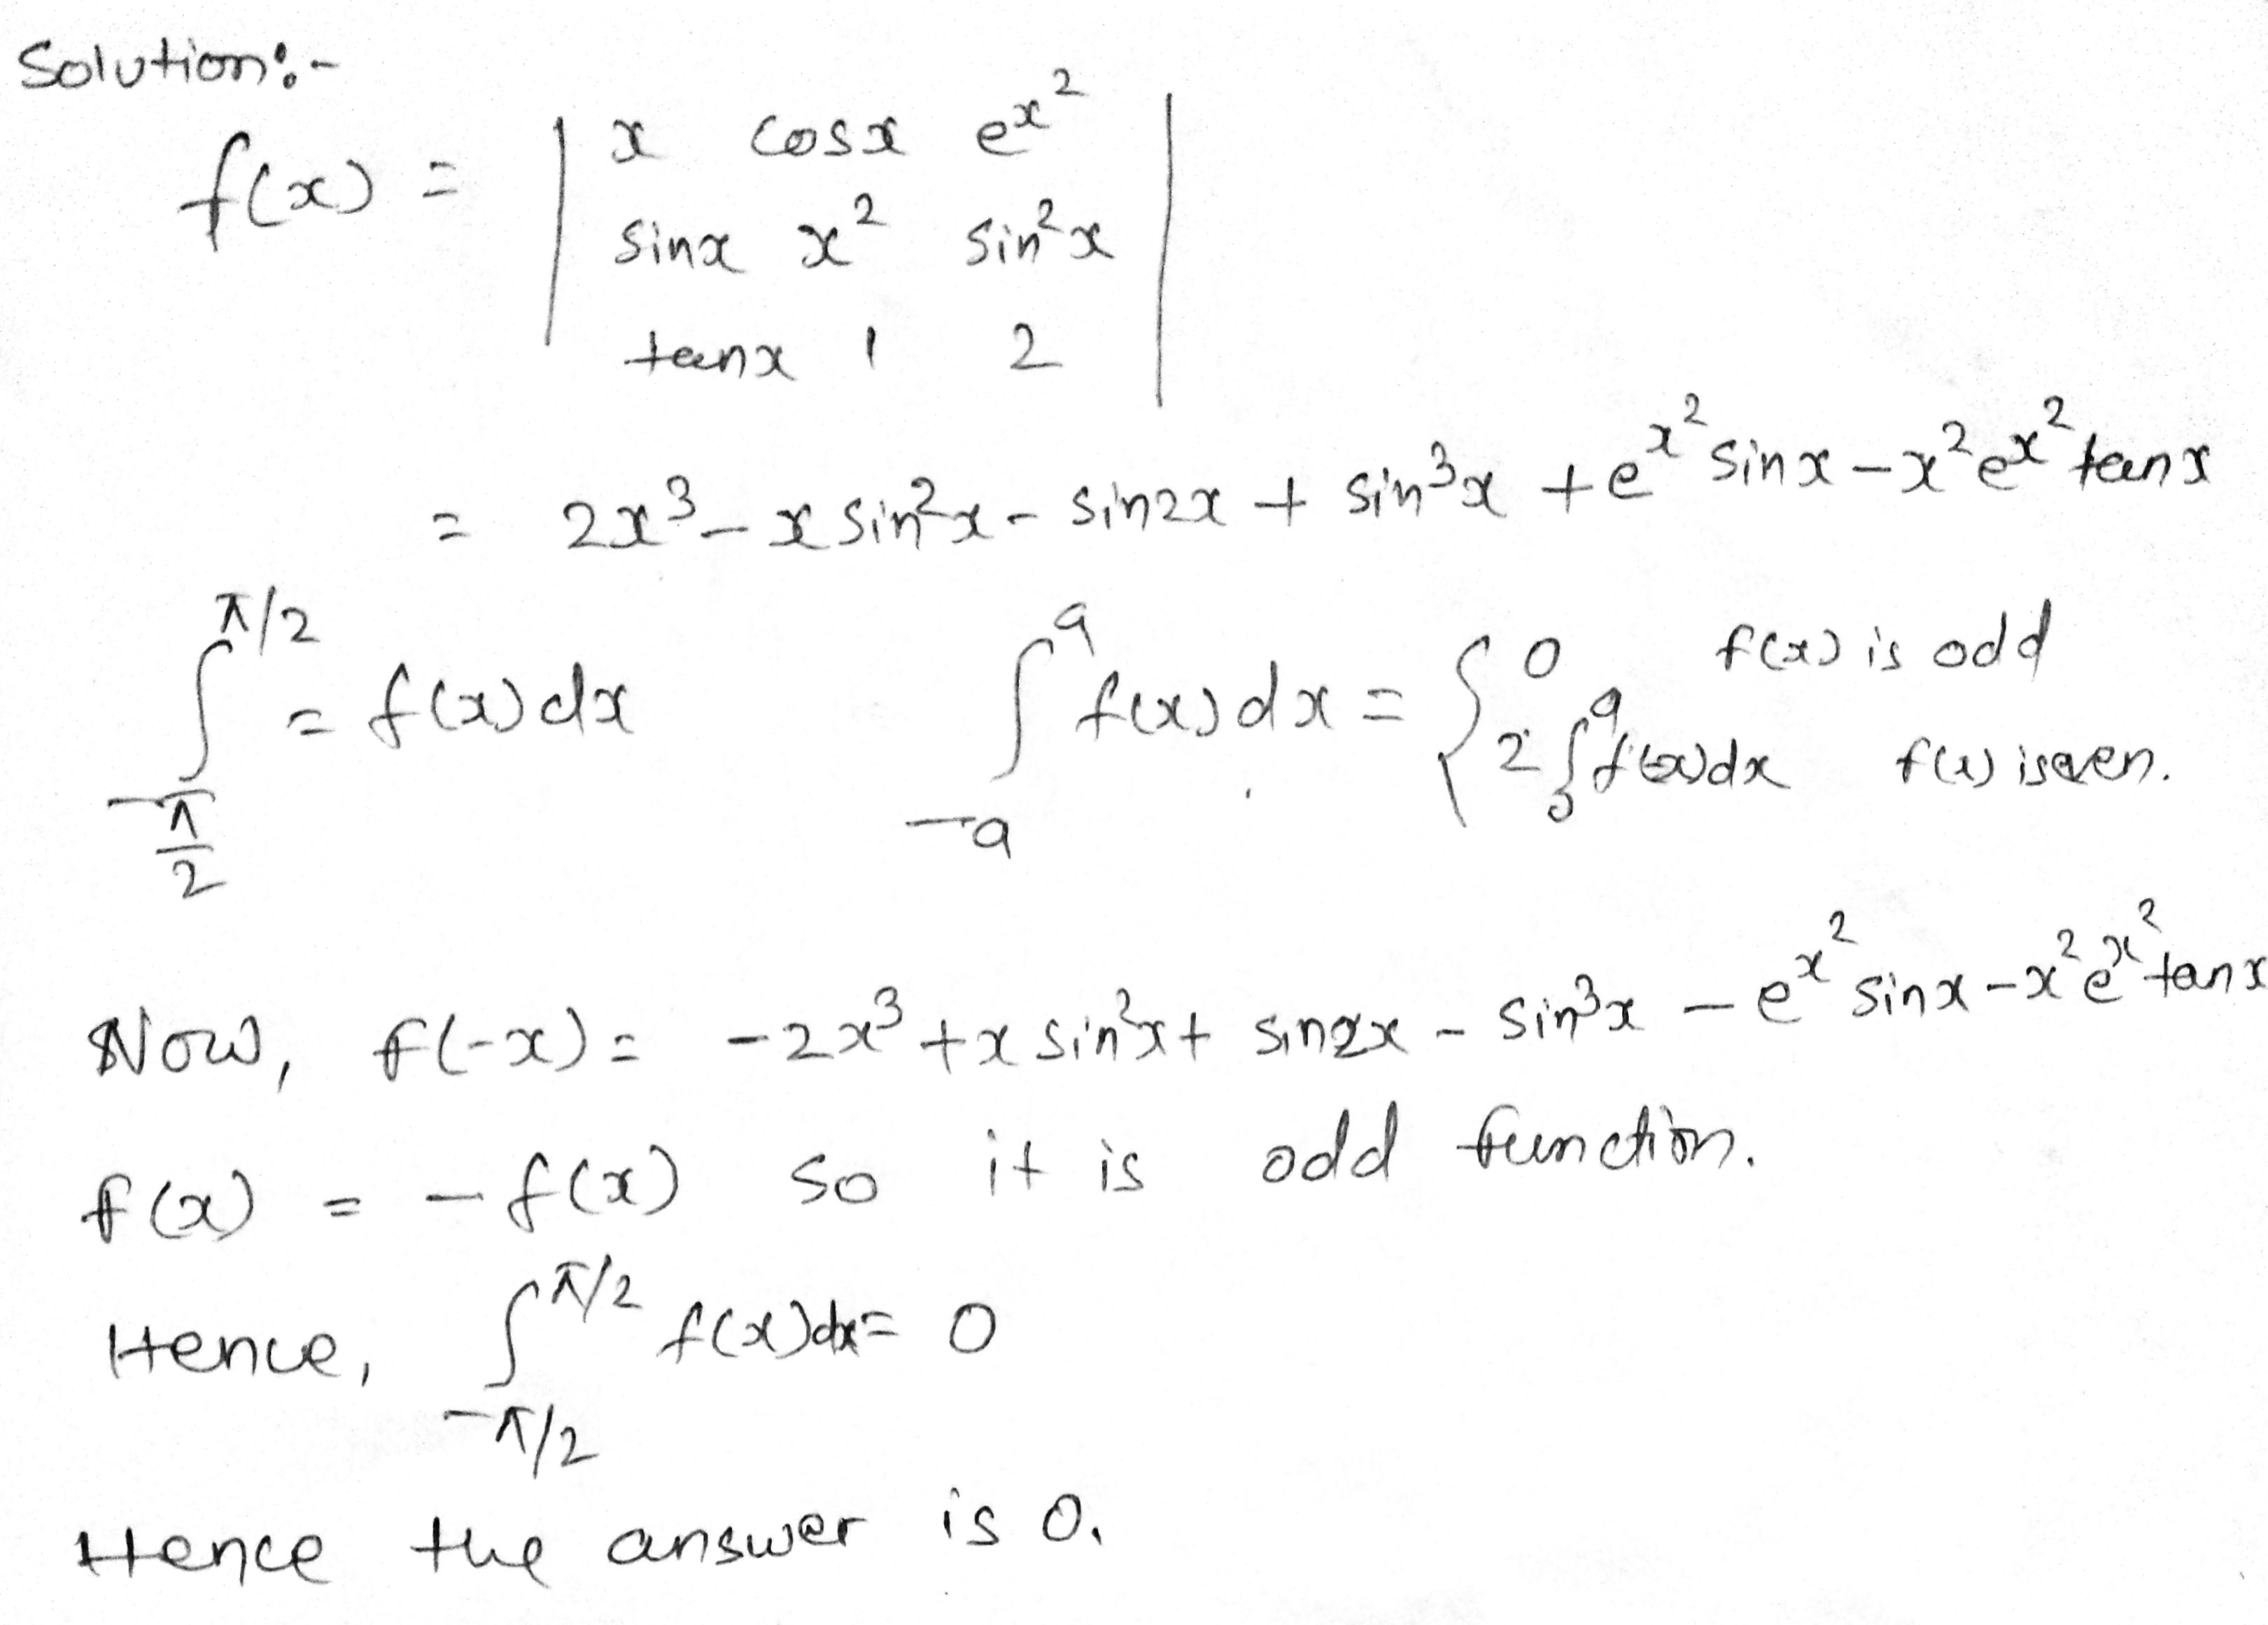 Solution:-
f(x) = | x cosx e^x^2 |
| sinx x^2 sin^2x |
| tanx 1 2 |
= 2x^3 - x sin^2x - sin2x + sin^3x + e^x^2 sinx - x^2 e^x^2 tanx
∫_{-π/2}^{π/2} = f(x)dx    ∫_{-a}^{a} f(x)dx = { 0 f(x) is odd
2∫_0^a f(x)dx f(x) is even.
Now, f(-x) = -2x^3 + x sin^2x + sin2x - sin^3x - e^x^2 sinx - x^2 e^x^2 tanx
f(x) = -f(x) so it is odd function.
Hence, ∫_{-π/2}^{π/2} f(x)dx = 0
Hence the answer is 0.